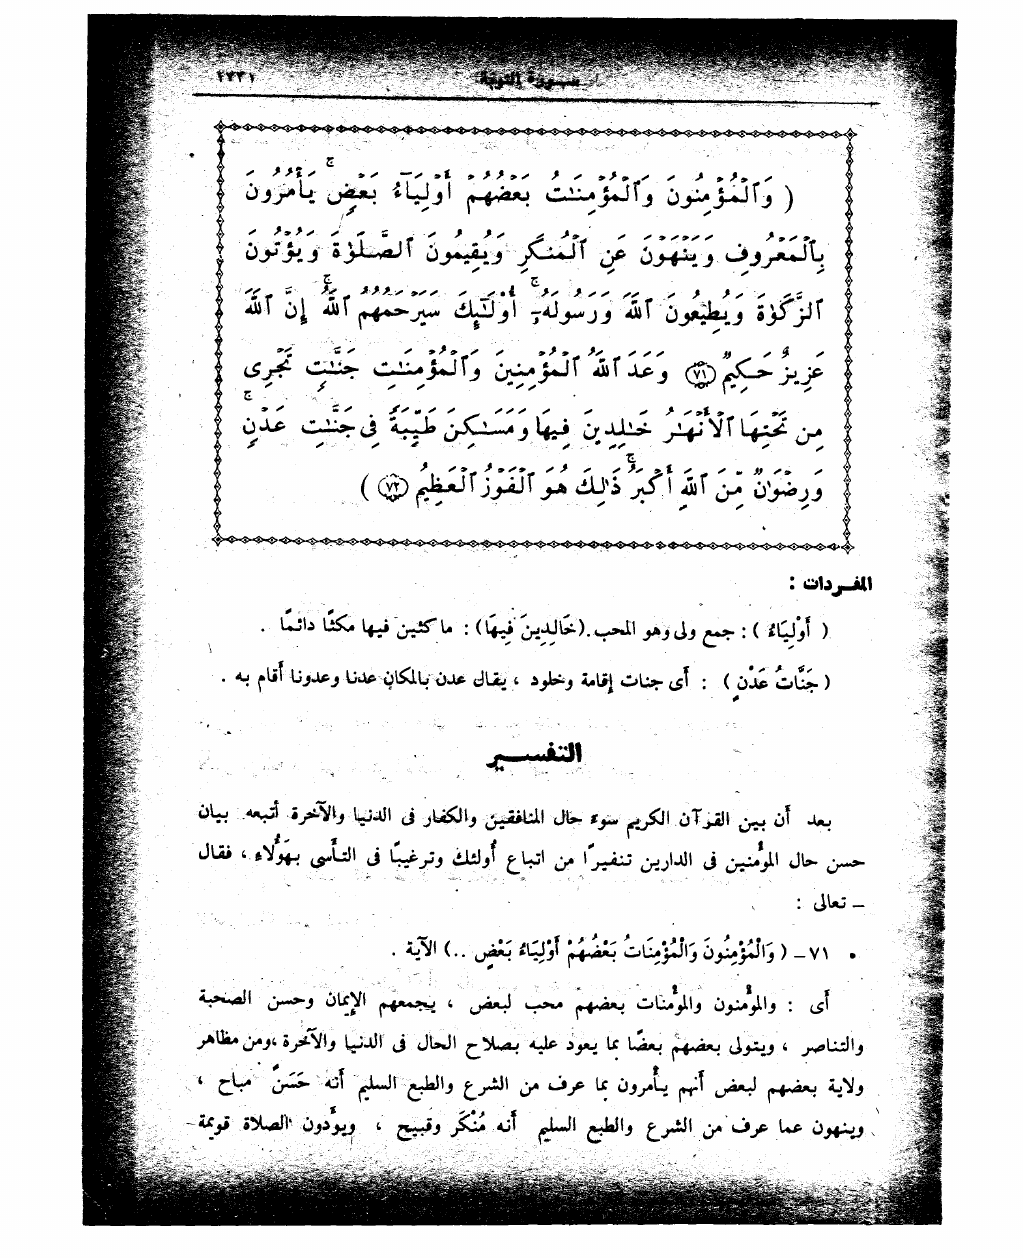 سورة التوبة
(وَٱلْمُؤْمِنُونَ وَٱلْمُؤْمِنَٰتُ بَعْضُهُمْ أَوْلِيَآءُ بَعْضٍۚ يَأْمُرُونَ
بِٱلْمَعْرُوفِ وَيَنْهَوْنَ عَنِ ٱلْمُنكَرِ وَيُقِيمُونَ ٱلصَّلَوٰةَ وَيُؤْتُونَ
ٱلزَّكَوٰةَ وَيُطِيعُونَ ٱللَّهَ وَرَسُولَهُۥٓۚ أُوْلَٰٓئِكَ سَيَرْحَمُهُمُ ٱللَّهُۗ إِنَّ ٱللَّهَ
عَزِيزٌ حَكِيمٌ ٧١ وَعَدَ ٱللَّهُ ٱلْمُؤْمِنِينَ وَٱلْمُؤْمِنَٰتِ جَنَّٰتٍ تَجْرِى
مِن تَحْتِهَا ٱلْأَنْهَٰرُ خَٰلِدِينَ فِيهَا وَمَسَٰكِنَ طَيِّبَةً فِى جَنَّٰتِ عَدْنٍۚ
وَرِضْوَٰنٌ مِّنَ ٱللَّهِ أَكْبَرُۚ ذَٰلِكَ هُوَ ٱلْفَوْزُ ٱلْعَظِيمُ ٧٢)
المفردات :
( أَوْلِيَاءُ ) : جمع ولى وهو المحب . (خَالِدِينَ فِيهَا) : ماكثين فيها مكثًا دائمًا .
( جَنَّاتُ عَدْنٍ ) : أى جنات إقامة وخلود ، يقال عدن بالمكان عدنا وعدونا أقام به .
التفسير
بعد أن بين القرآن الكريم سوء حال المنافقين والكفار فى الدنيا والآخرة أتبعه بيان
حسن حال المؤمنين فى الدارين تنفيرًا من اتباع أولئك وترغيبًا فى التأسى بهؤلاء ، فقال
– تعالى :
• ٧١– ( وَالْمُؤْمِنُونَ وَالْمُؤْمِنَاتُ بَعْضُهُمْ أَوْلِيَاءُ بَعْضٍ ..) الآية .
أى : والمؤمنون والمؤمنات بعضهم محب لبعض ، يجمعهم الإيمان وحسن الصحبة
والتناصر ، ويتولى بعضهم بعضًا بما يعود عليه بصلاح الحال فى الدنيا والآخرة ، ومن مظاهر
ولاية بعضهم لبعض أنهم يأمرون بما عرف من الشرع والطبع السليم أنه حَسَنٌ مباح ،
وينهون عما عرف من الشرع والطبع السليم أنه مُنْكَر وقبيح ، ويؤدون الصلاة قويمة